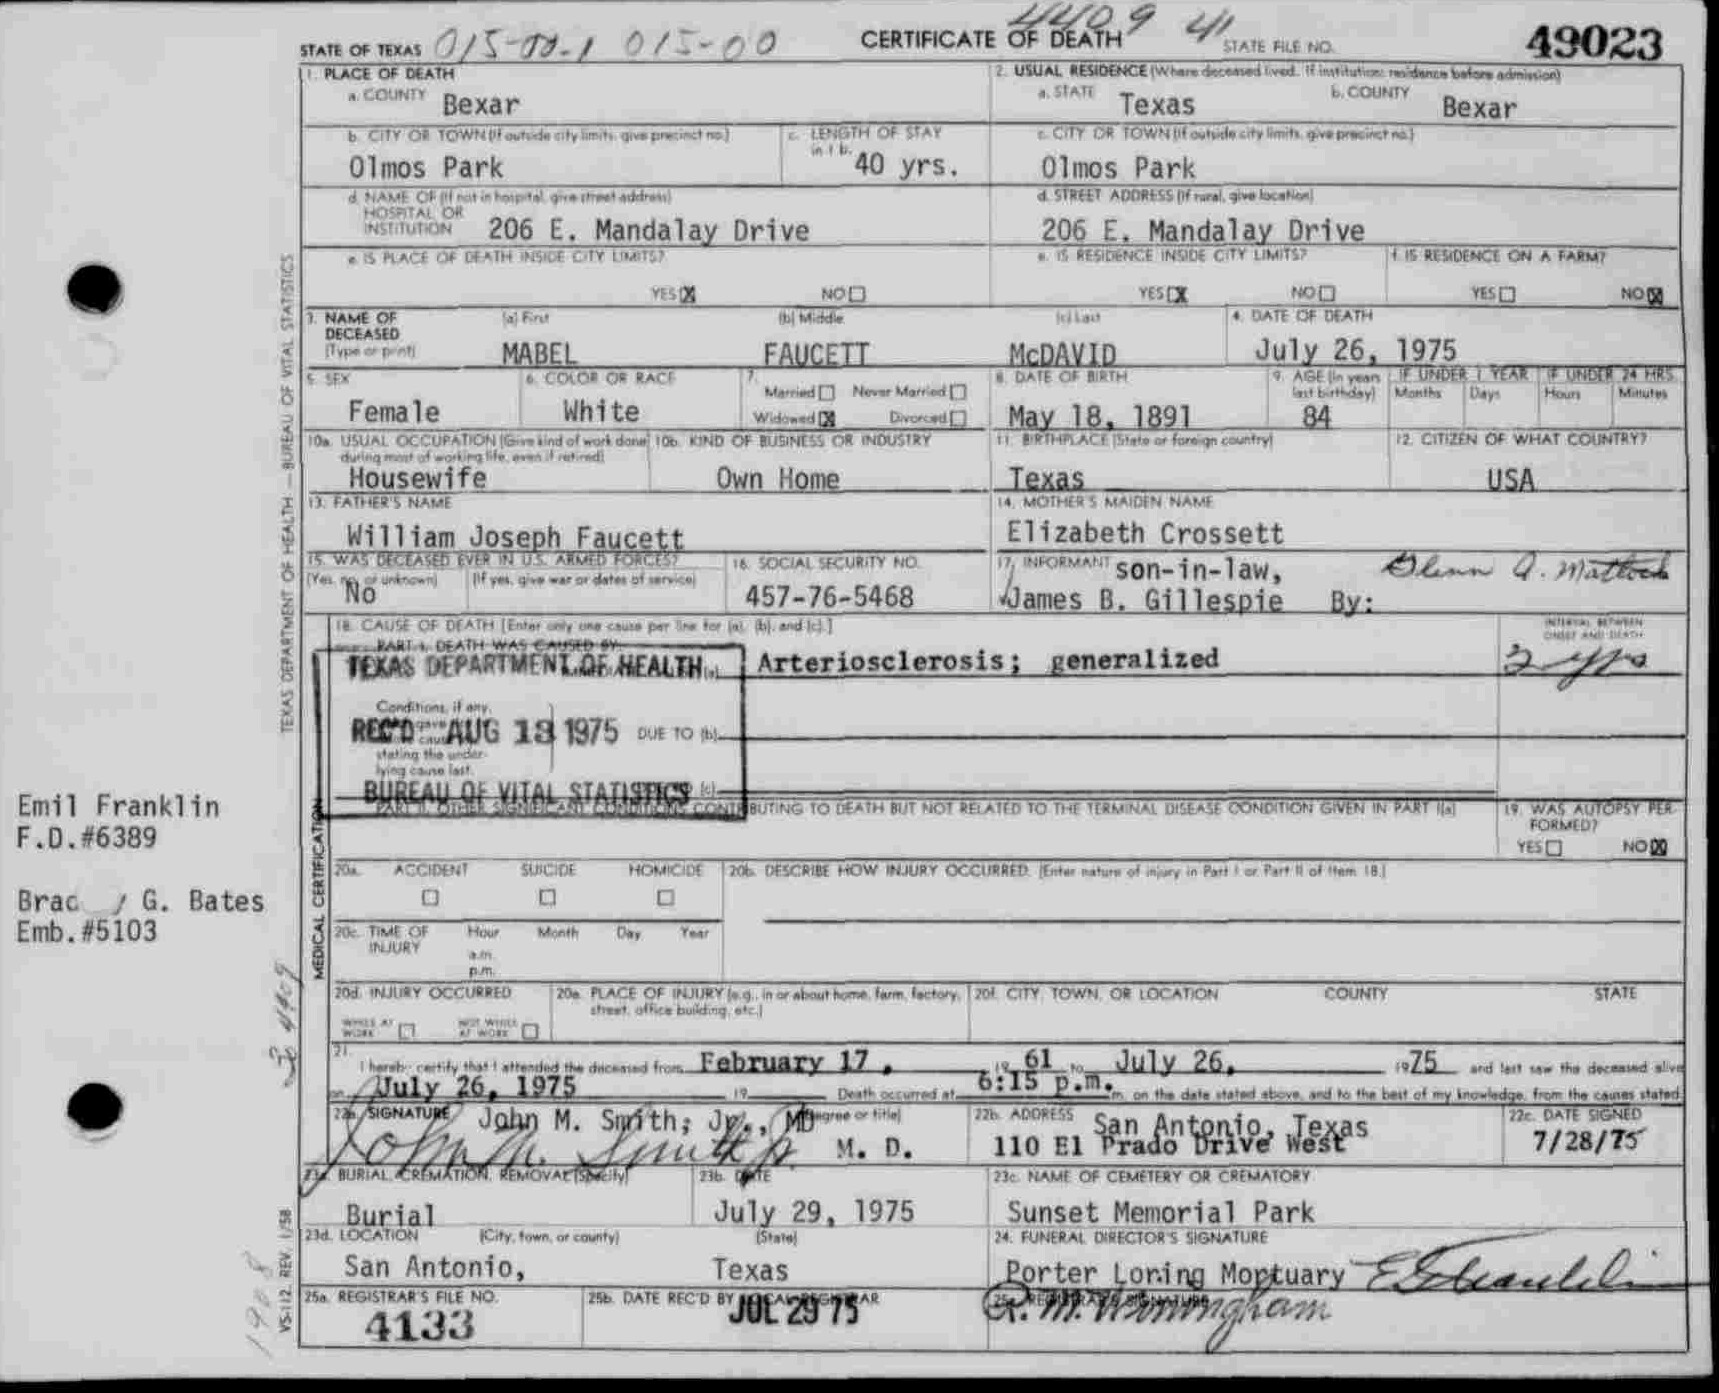 4409 41
STATE OF TEXAS 015-00-1 015-00 CERTIFICATE OF DEATH STATE FILE NO. 49023
1. PLACE OF DEATH
a. COUNTY Bexar
2. USUAL RESIDENCE (Where deceased lived. If institution: residence before admission)
a. STATE Texas b. COUNTY Bexar
b. CITY OR TOWN (If outside city limits, give precinct no.) Olmos Park
c. LENGTH OF STAY in 1 b. 40 yrs.
c. CITY OR TOWN (If outside city limits, give precinct no.) Olmos Park
d. NAME OF (If not in hospital, give street address)
HOSPITAL OR
INSTITUTION 206 E. Mandalay Drive
d. STREET ADDRESS (If rural, give location)
206 E. Mandalay Drive
e. IS PLACE OF DEATH INSIDE CITY LIMITS?
YES X NO
e. IS RESIDENCE INSIDE CITY LIMITS?
YES X NO
f. IS RESIDENCE ON A FARM?
YES NO X
3. NAME OF DECEASED (Type or print)
(a) First MABEL
(b) Middle FAUCETT
(c) Last McDAVID
4. DATE OF DEATH
July 26, 1975
5. SEX
Female
6. COLOR OR RACE
White
7. Married Never Married
Widowed X Divorced
8. DATE OF BIRTH
May 18, 1891
9. AGE (In years last birthday)
84
IF UNDER 1 YEAR Months Days
IF UNDER 24 HRS. Hours Minutes
10a. USUAL OCCUPATION (Give kind of work done during most of working life, even if retired)
Housewife
10b. KIND OF BUSINESS OR INDUSTRY
Own Home
11. BIRTHPLACE (State or foreign country)
Texas
12. CITIZEN OF WHAT COUNTRY?
USA
13. FATHER'S NAME
William Joseph Faucett
14. MOTHER'S MAIDEN NAME
Elizabeth Crossett
15. WAS DECEASED EVER IN U.S. ARMED FORCES?
(Yes, no, or unknown) (If yes, give war or dates of service)
No
16. SOCIAL SECURITY NO.
457-76-5468
17. INFORMANT son-in-law,
James B. Gillespie By: Glenn A. Mattock
18. CAUSE OF DEATH [Enter only one cause per line for (a), (b), and (c).]
PART I. DEATH WAS CAUSED BY:
(a) Arteriosclerosis; generalized
INTERVAL BETWEEN
ONSET AND DEATH
2 yrs
TEXAS DEPARTMENT OF HEALTH
Conditions, if any,
REC'D AUG 13 1975
DUE TO (b)
stating the under-
lying cause last.
BUREAU OF VITAL STATISTICS
(c)
PART II. OTHER SIGNIFICANT CONDITIONS CONTRIBUTING TO DEATH BUT NOT RELATED TO THE TERMINAL DISEASE CONDITION GIVEN IN PART I(a)
19. WAS AUTOPSY PERFORMED?
YES NO X
20a. ACCIDENT SUICIDE HOMICIDE
20b. DESCRIBE HOW INJURY OCCURRED. (Enter nature of injury in Part I or Part II of Item 18.)
20c. TIME OF INJURY Hour Month Day Year
a.m.
p.m.
20d. INJURY OCCURRED
WHILE AT WORK NOT WHILE AT WORK
20e. PLACE OF INJURY (e.g., in or about home, farm, factory, street, office building, etc.)
20f. CITY, TOWN, OR LOCATION COUNTY STATE
21.
I hereby certify that I attended the deceased from February 17, 19 61 to July 26, 1975 and last saw the deceased alive
on July 26, 1975 19 Death occurred at 6:15 p.m. m. on the date stated above, and to the best of my knowledge, from the causes stated.
22a. SIGNATURE John M. Smith; Jr., MD (Degree or title)
John M. Smith Jr M. D.
22b. ADDRESS San Antonio, Texas
110 El Prado Drive West
22c. DATE SIGNED
7/28/75
23a. BURIAL, CREMATION, REMOVAL (Specify)
Burial
23b. DATE
July 29, 1975
23c. NAME OF CEMETERY OR CREMATORY
Sunset Memorial Park
23d. LOCATION (City, town, or county) (State)
San Antonio, Texas
24. FUNERAL DIRECTOR'S SIGNATURE
Porter Loring Mortuary
25a. REGISTRAR'S FILE NO.
4133
25b. DATE REC'D BY LOCAL REGISTRAR
JUL 29 75
25c. REGISTRAR'S SIGNATURE
TEXAS DEPARTMENT OF HEALTH — BUREAU OF VITAL STATISTICS
MEDICAL CERTIFICATION
VS-112, REV. 1/58
Emil Franklin
F.D.#6389
G. Bates
Emb.#5103
4409